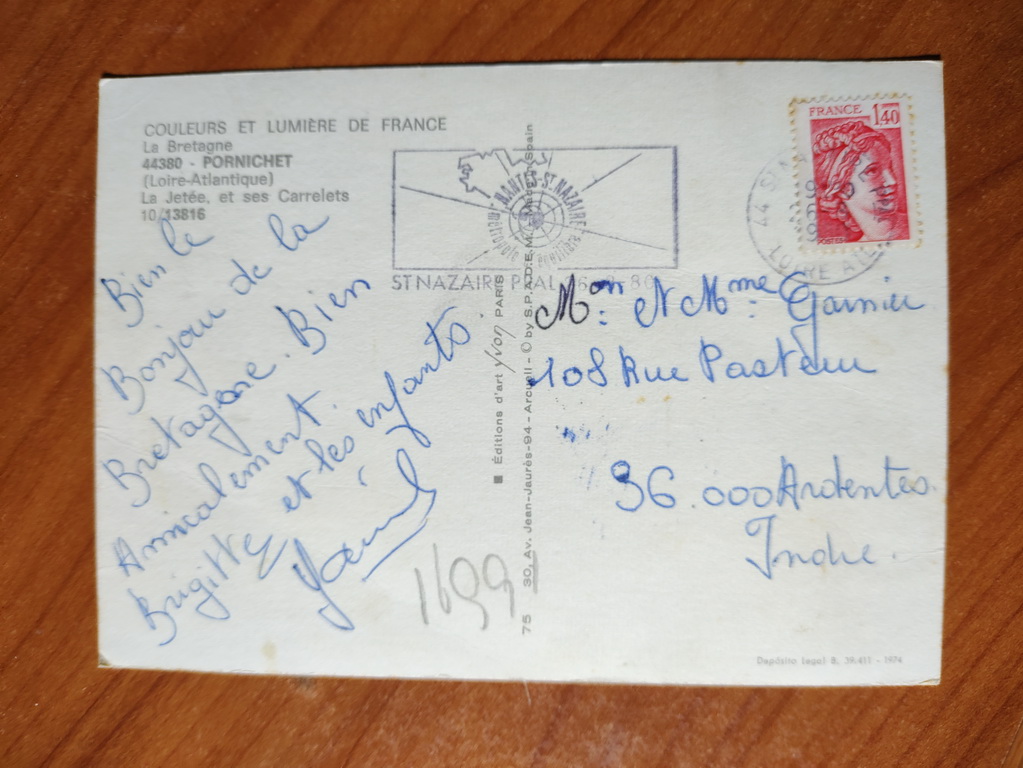 COULEURS ET LUMIÈRE DE FRANCE
La Bretagne
44380 - PORNICHET
(Loire-Atlantique)
La Jetée, et ses Carrelets
10/13816
Bien le
Bonjour de la
Bretagne. Bien
Amicalement.
Brigitte et les enfants
1699
NANTES-ST NAZAIRE
ST NAZAIRE PPAL 80
■ Éditions d'art yvon PARIS
75 30, Av. Jean-Jaurès-94-Arcueil - © by S.P.A.D.E.M. Made in Spain
FRANCE 1,40
POSTES
44 ST NAZ
LOIRE ATL
Mon: et Mme: Garnier
108 Rue Pasteur
36.000 Ardentes.
Indre.
Depósito Legal B. 39.411 - 1974